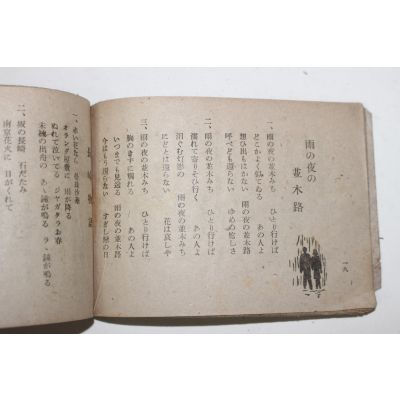 一九
雨の夜の
並木路
一、雨の夜の並木みち ひとり行けば
どこかよく似てゐる あの人よ
想ひ出もはかない 雨の夜の並木路
呼べども還らない ゆめの悲しさ
二、雨の夜の並木みち ひとり行けば
濡れて寄りそひ行く あの人よ
泪ぐむ灯影の 雨の夜の並木路
にどとは還らない 花は哀しや
三、雨の夜の並木みち ひとり行けば
胸のきずに觸れる あの人よ
いつまでも見送る 雨の夜の並木路
今はもう還らない すぎし戀の日
長崎物語
一、赤い花なら 曼珠沙華
オランダ屋敷に 雨が降る
ぬれて泣いてる ジャガタラお春
未練の出舟の あゝ鐘が鳴る ラヽ鐘が鳴る
二、坂の長崎 石だたみ
南京花火に 日がくれて